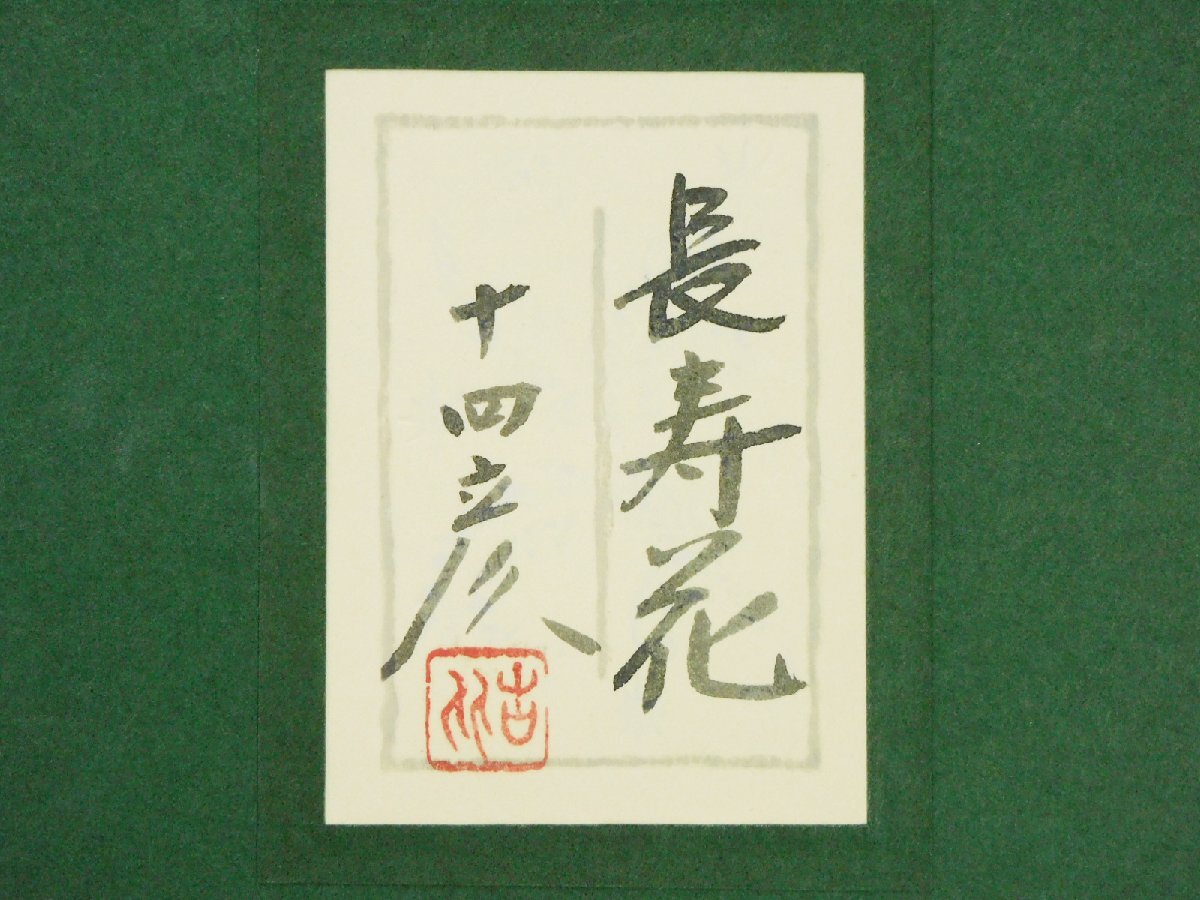 長寿花
十四彦